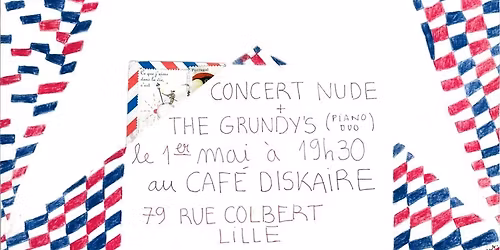 Ce que j'aime
dans la vie,
c'est
CONCERT NUDE
+
THE GRUNDY'S (PIANO DUO)
le 1er mai à 19h30
au CAFÉ DISKAIRE
79 RUE COLBERT
LILLE